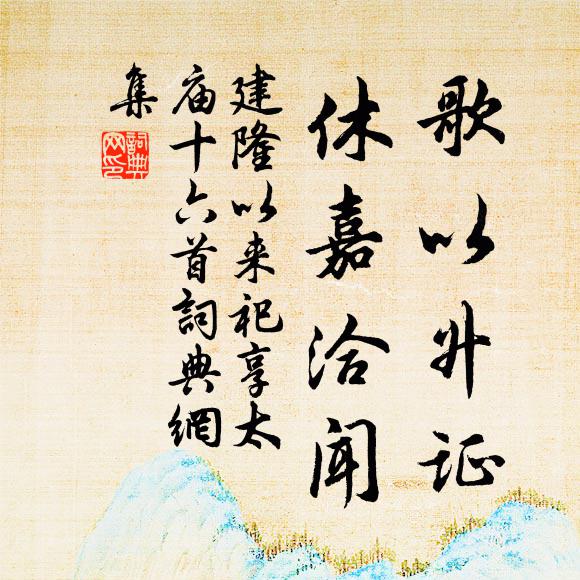 歌以升证
休嘉洽闻
建隆以来祀享太
庙十六首詞典網
集
詞典網印